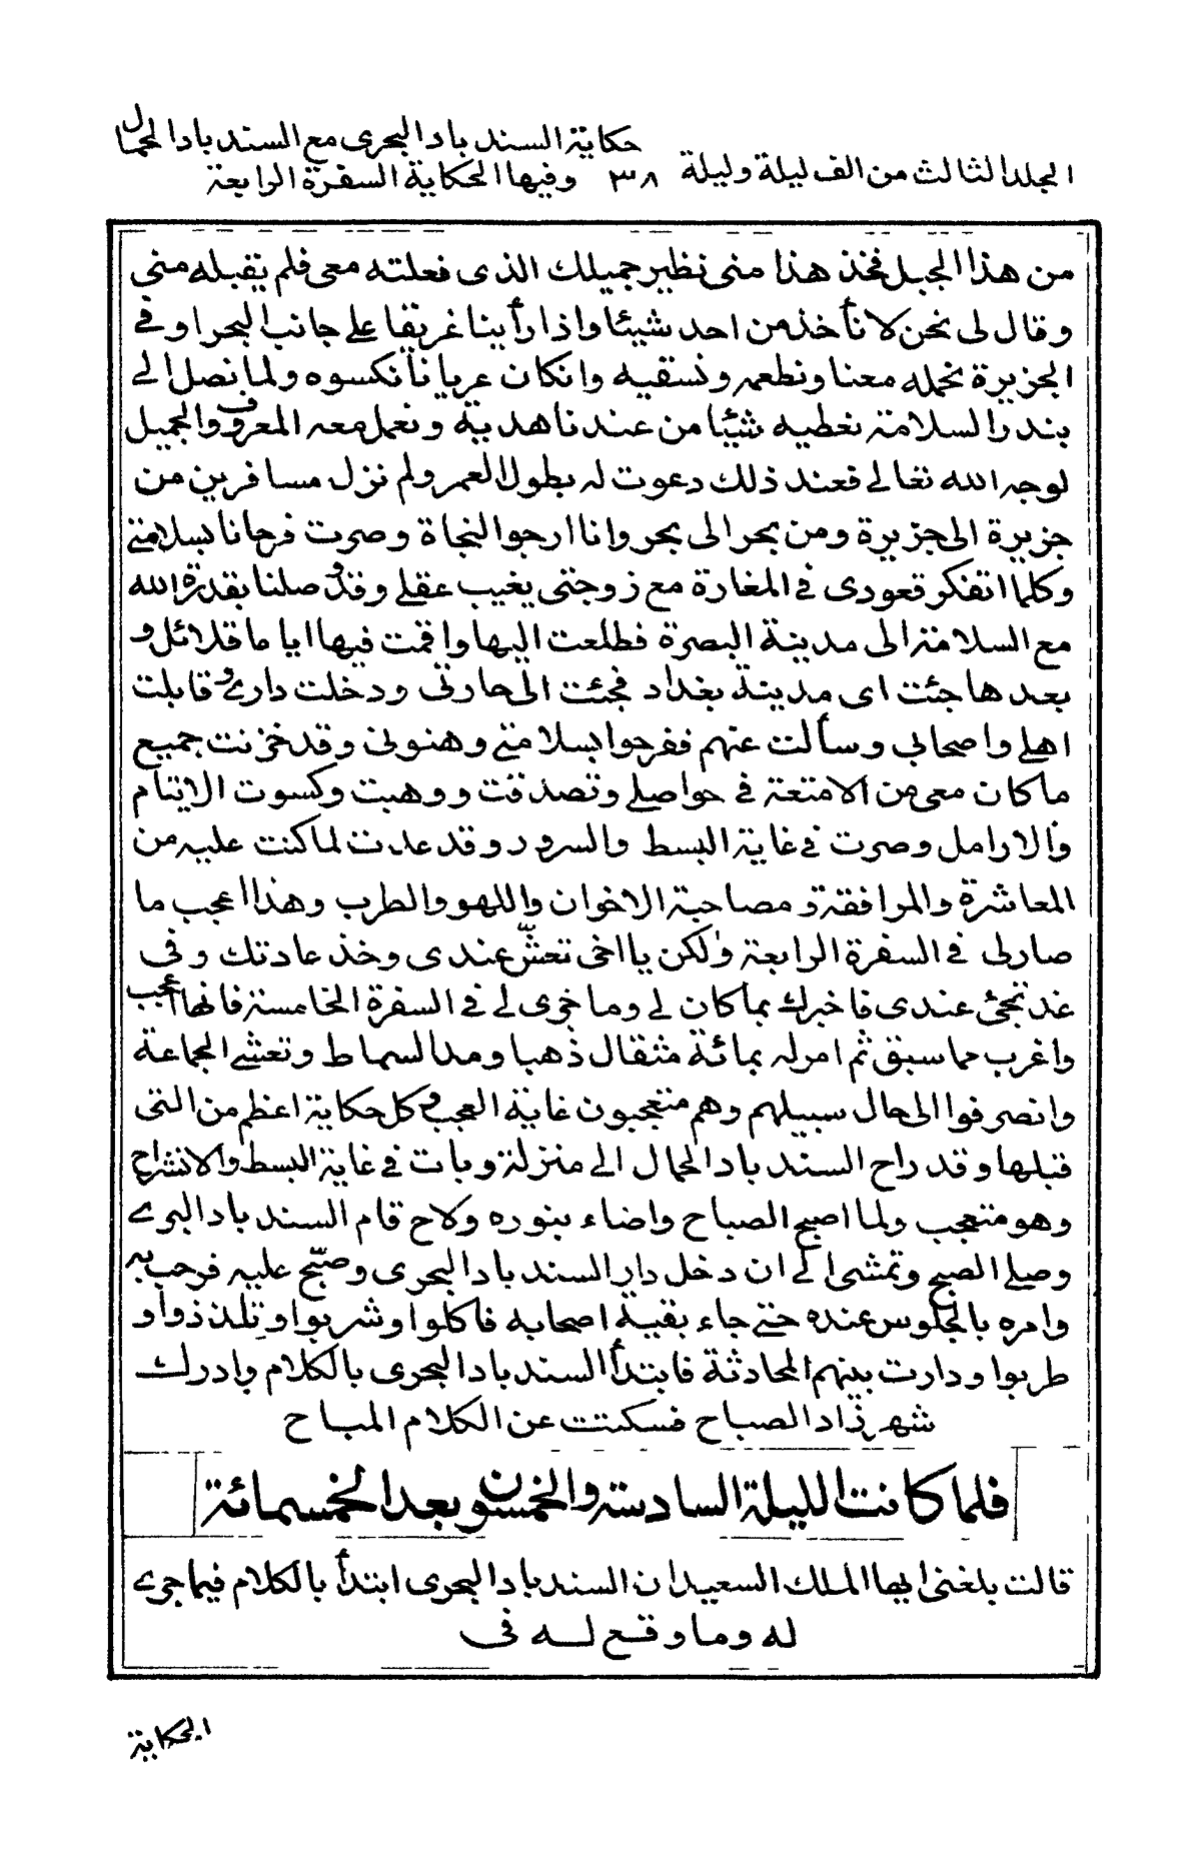 المجلد الثالث من الف ليلة وليلة ٣٨ حكاية السند باد البحرى مع السند باد الحمال
وفيها الحكاية السفرة الرابعة
من هذا الجبل فخذ هذا منى نظير جميلك الذى فعلته معى فلم يقبله منى
وقال لى نحن لا نأخذ من احد شيئا واذا رأينا غريقا على جانب البحر او فے
الجزيرة نحمله معنا ونطعمه ونسقيه وانكان عريانا نكسوه ولما نصل الے
بندر السلامة نعطيه شيئا من عندنا هدية ونعمل معه المعروف والجميل
لوجه الله تعالے فعند ذلك دعوت له بطول العمر ولم نزل مسافرين من
جزيرة الى جزيرة ومن بحر الى بحر وانا ارجو النجاة وصرت فرحانا بسلامتے
وكلما اتفكر قعودى فے المغارة مع زوجتى يغيب عقلے وقد وصلنا بقدرة الله
مع السلامة الى مدينة البصرة فطلعت اليها واقمت فيها اياما قلائل و
بعدها جئت اى مدينة بغداد فجئت الى حارتى ودخلت دارے وقابلت
اهلے واصحابى وسألت عنهم ففرحوا بسلامتے وهنونى وقد خزنت جميع
ما كان معى من الامتعة فے حواصلے وتصدقت ووهبت وكسوت الايتام
والارامل وصرت فے غاية البسط والسرور وقد عدت لما كنت عليه من
المعاشرة والمرافقة ومصاحبة الاخوان واللهو والطرب وهذا اعجب ما
صار لى فے السفرة الرابعة ولكن يا اخى تعشّ عندى وخذ عادتك وفى
غد تجئ عندى فاخبرك بما كان لے وما جرى لے فے السفرة الخامسة فانها اعجب
واغرب مما سبق ثم امر له بمائة مثقال ذهبا ومد السماط وتعشے الجماعة
وانصرفوا الى حال سبيلهم وهم متعجبون غاية العجب وكل حكاية اعظم من التى
قبلها وقد راح السند باد الحمال الے منزلة وبات فے غاية البسط والانشراح
وهو متعجب ولما اصبح الصباح واضاء بنوره ولاح قام السند باد البرے
وصلے الصبح وتمشى الے ان دخل دار السند باد البحرى وصبّح عليه فرحب به
وامره بالجلوس عنده حتے جاء بقية اصحابه فاكلوا وشربوا وتلذذوا و
طربوا ودارت بينهم المحادثة فابتدأ السند باد البحرى بالكلام وادرك
شهرزاد الصباح فسكتت عن الكلام المباح
فلما كانت الليلة السادسة والخمسون بعد الخمسمائة
قالت بلغنى ايها الملك السعيد ان السند باد البحرى ابتدأ بالكلام فيما جرے
له وما وقع له فى
الحكاية